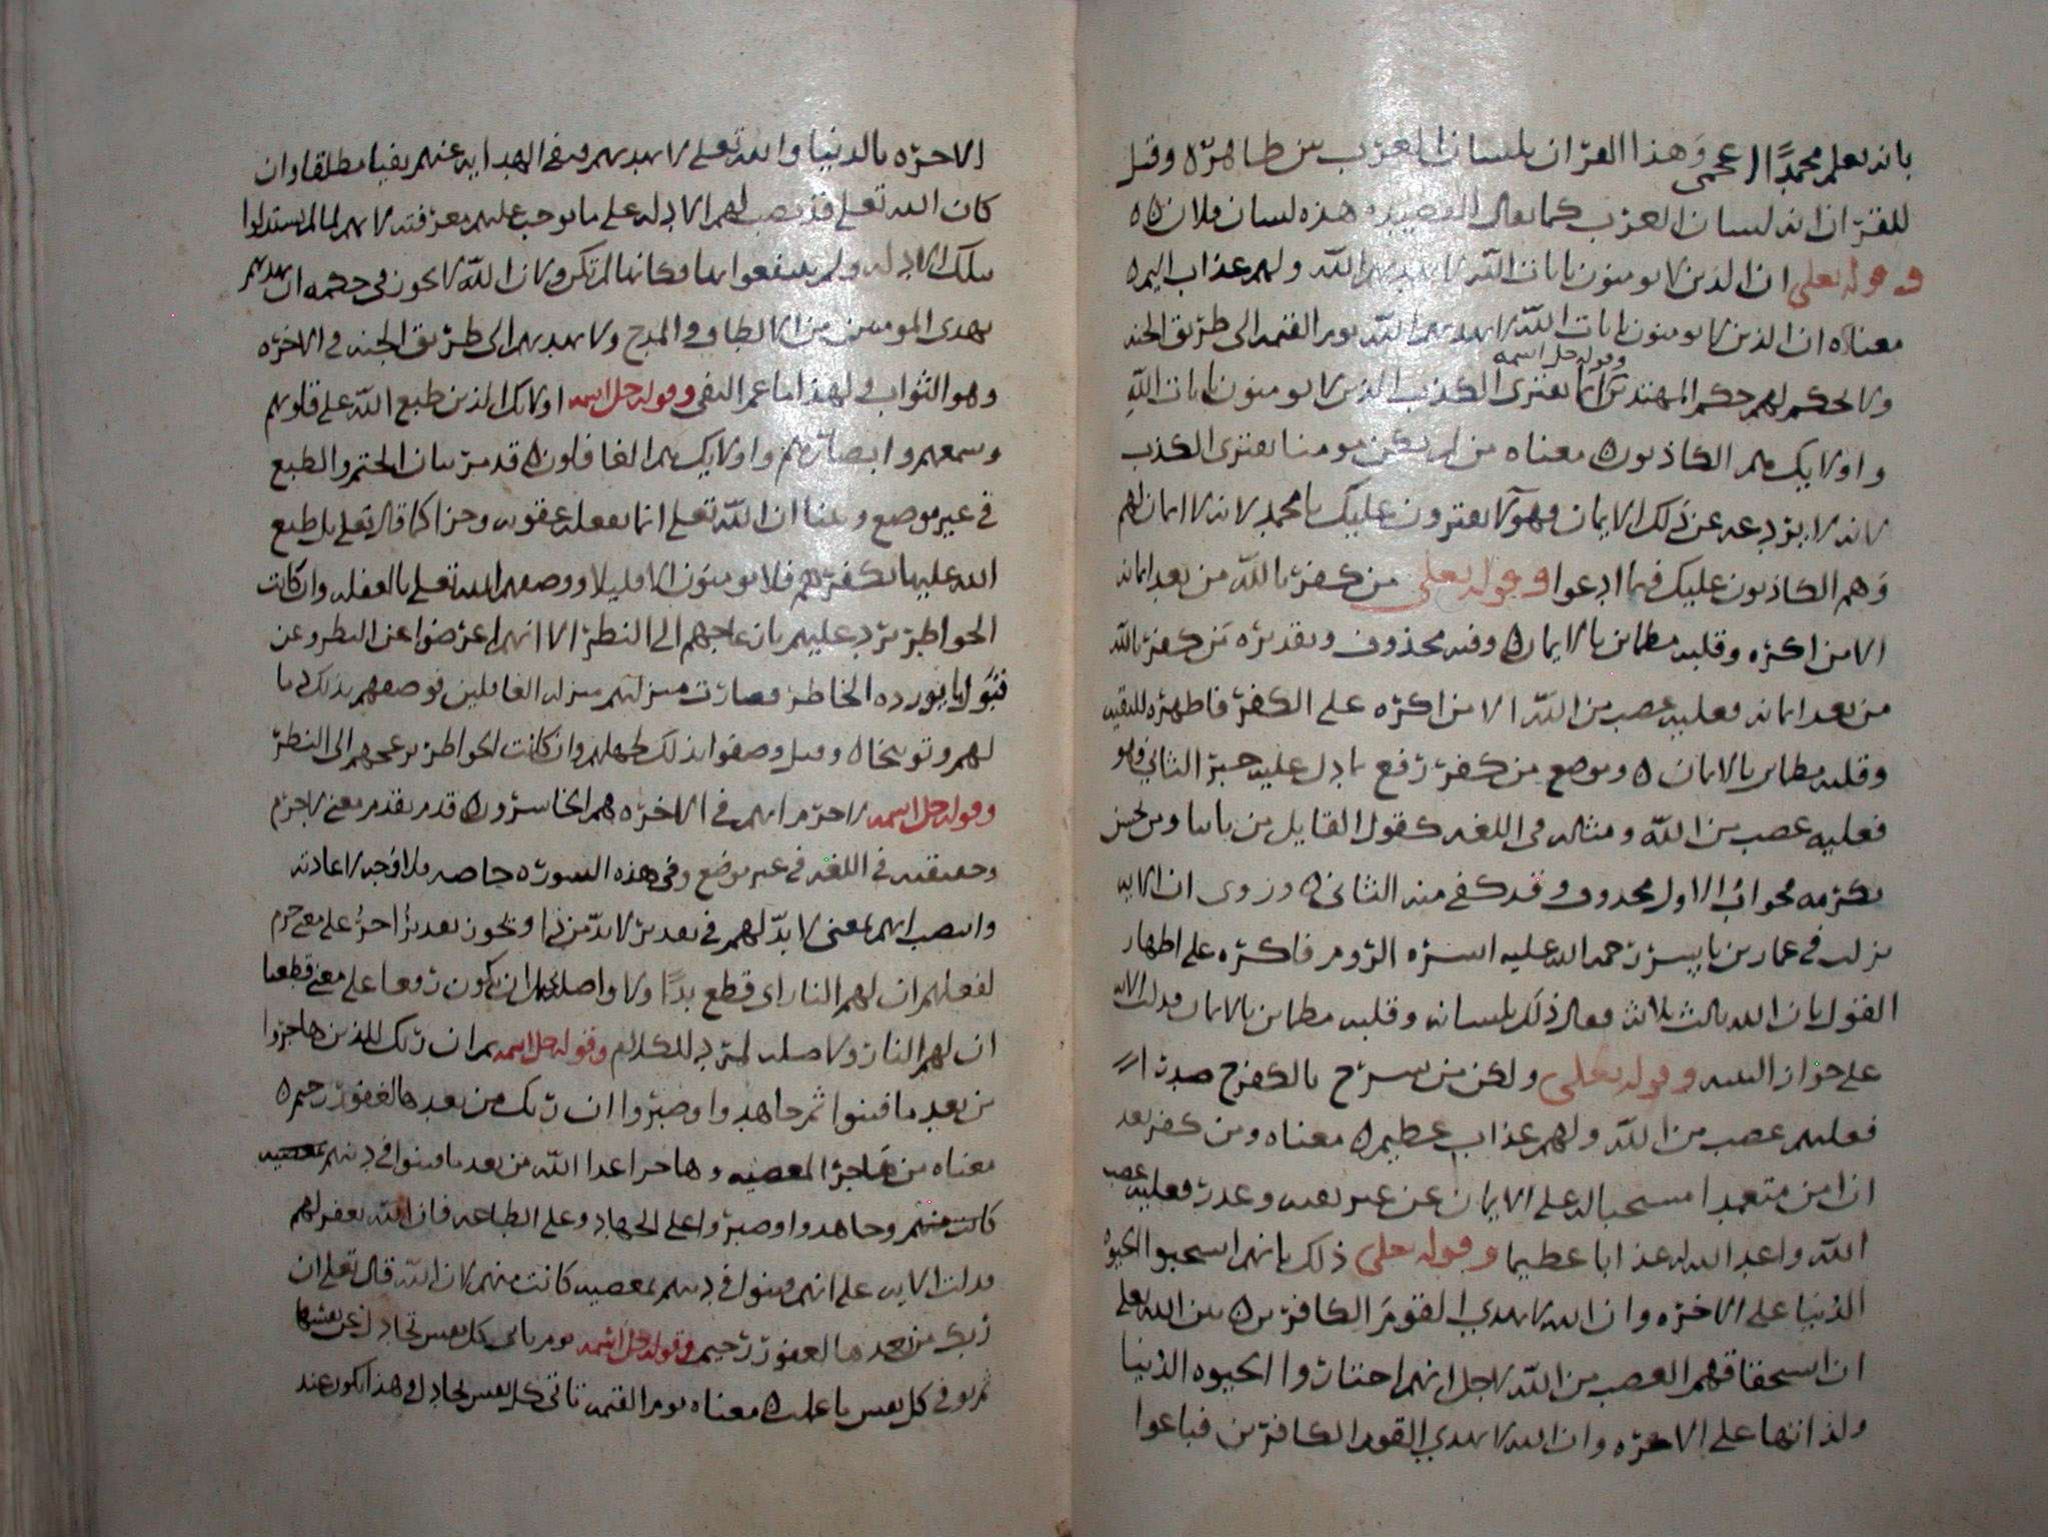 بانه يعلم محمدا اعجمي وهذا القران بلسان العرب بين ظاهره وقيل
للقران انه لسان العرب كما يقال القصيده هذه لسان فلان ه
وقوله تعلى ان الذين لا يومنون بايات الله لا يهديهم الله ولهم عذاب اليم ه
معناه ان الذين لا يومنون بايات الله لا يهديهم الله يوم القيمه الى طريق الجنه
ولا يحكم لهم حكم المهتدين وقوله جل اسمه انما يفتري الكذب الذين لا يومنون بايات الله
واولايك هم الكاذبون ه معناه من لم يكن مومنا يفتري الكذب
لانه لا يردعه عن ذلك الايمان وهولا يفترون عليك يا محمد لانه لا ايمان لهم
وهم الكاذبون عليك فيما ادعوا وقوله تعلى من كفر بالله من بعد ايمانه
الا من اكره وقلبه مطمئن بالايمان ه وفيه محذوف وتقديره من كفر بالله
من بعد ايمانه فعليه غضب من الله الا من اكره على الكفر فاظهره للتقيه
وقلبه مطمئن بالايمان ه وموضع من كفر رفع بما دل عليه خبر الثاني فهو
فعليه غضب من الله ومثاله في اللغه كقول القايل من ياتنا ومن يحسن
نكرمه فجواب الاول محذوف وقد كفى منه الثاني ه وروى ان الايه
نزلت في عمار بن ياسر رحمه الله عليه اسره الروم فاكره على اظهار
القول بان الله ثالث ثلاثه فقال ذلك بلسانه وقلبه مطمئن بالايمان فدلت الايه
على جواز التقيه وقوله تعلى ولكن من شرح بالكفر صدرا
فعليهم غضب من الله ولهم عذاب عظيم ه معناه ومن كفر بعد
ان امن متعمدا مستحبا له على الايمان عن غير تقيه وعذر فعليه غضب
الله واعد الله له عذابا عظيما وقوله تعلى ذلك بانهم استحبوا الحيوه
الدنيا على الاخره وان الله لا يهدي القوم الكافرين ه بين الله تعلى
ان استحقاقهم الغضب من الله لاجل انهم اختاروا الحيوه الدنيا
ولذاتها على الاخره وان الله لا يهدي القوم الكافرين فباعوا
الاخره بالدنيا والله تعلى لا يهديهم ونفى الهدايه عنهم نفيا مطلقا وان
كان الله تعلى قد نصب لهم الادله على ما يوجب عليهم معرفته لانهم لما لم يستدلوا
بتلك الادله ولم ينتفعوا بها فكانها لم تكن ولان الله لا يكون في حكمه ان يهديهم
بهدي المومنين من الالطاف والمدح ولا يهديهم الى طريق الجنه في الاخره
وهو الثواب فلهذا ما عم النفي وقوله جل اسمه اولايك الذين طبع الله على قلوبهم
وسمعهم وابصارهم واولايك هم الغافلون ه قد مر بيان الختم والطبع
في غير موضع وبينا ان الله تعلى انما يفعله عقوبه وجزا كما قال تعلى بل طبع
الله عليها بكفرهم فلا يومنون الا قليلا ووصفهم الله تعلى بالغفله وان كانت
الخواطر ترد عليهم بازعاجهم الى النظر الا انهم اعرضوا عن النظر وعن
قبول ما يورده الخاطر فصارت منزلتهم منزله الغافلين فوصفهم بذلك ذما
لهم وتوبيخا ه وقيل وصفوا بذلك لجهلهم وان كانت الخواطر تزعجهم الى النظر
وقوله جل اسمه لا جرم انهم في الاخره هم الخاسرون ه قد تقدم معنى لا جرم
وحقيقته في اللغه في غير موضع وفي هذه السوره خاصه فلا وجه لاعادته
وانتصب انهم بمعنى لا بد لهم في تقدير لا بد من ذا ويجوز تقديرا اخر على معنى جرم
لفعلهم ان لهم النار اي قطع بدا ولا واصله ان يكون رفعا على معنى قطعنا
ان لهم النار ولا صله لم ترد للكلام وقوله جل اسمه ثم ان ربك للذين هاجروا
من بعد ما فتنوا ثم جاهدوا وصبروا ان ربك من بعدها لغفور رحيم ه
معناه من هاجر المعصيه وهاجر اعدا الله من بعد ما فتنوا في دينهم بمعصيه
كانت منهم وجاهدوا وصبروا على الجهاد وعلى الطاعه فان الله يغفر لهم
فدلت الايه على انهم فتنوا في دينهم بمعصيه كانت منهم لان الله قال تعلى ان
ربك من بعدها لغفور رحيم وقوله جل اسمه يوم تاتي كل نفس تجادل عن نفسها
ثم توفى كل نفس ما عملت ه معناه يوم القيمه تاتي كل نفس تجادل وهذا يكون عند